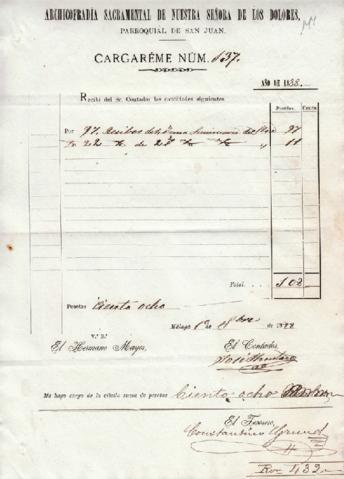 ARCHICOFRADÍA SACRAMENTAL DE NUESTRA SEÑORA DE LOS DOLORES,
PARROQUIAL DE SAN JUAN.
CARGARÉME NÚM. 137.
AÑO DE 1888.
Recibí del Sr. Contador las cantidades siguientes
Pesetas. Cents.
Por 97 Recibos de 97
22 de 11
Total. 108
Pesetas Ciento ocho
Málaga 1º de de 1888
V.º B.º
El Hermano Mayor, El Contador,
Me hago cargo de la citada suma de pesetas Ciento ocho
El Tesorero,
Constantino Grund
Rvn 432